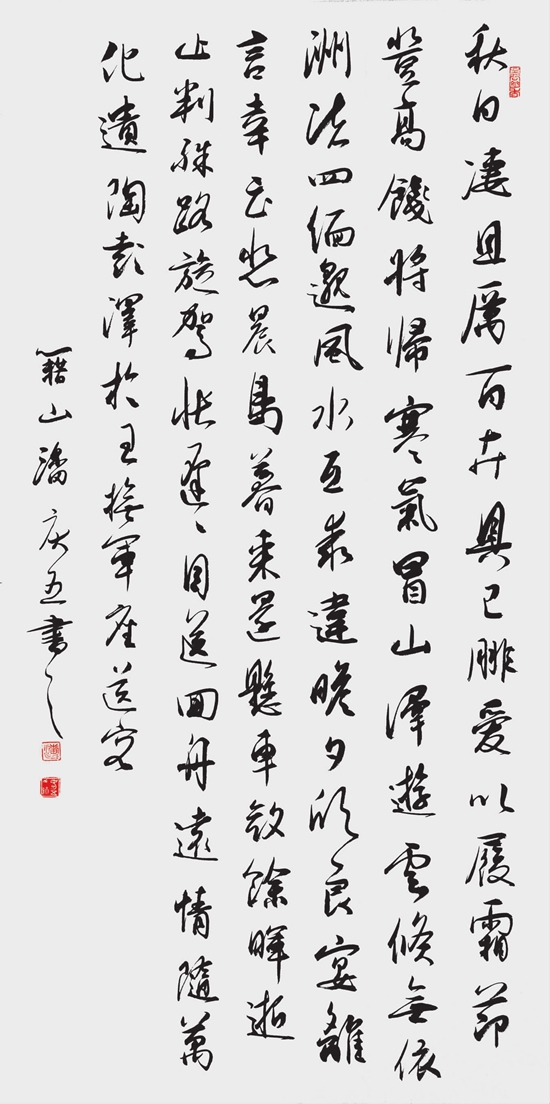 秋日淒且厲百卉具已腓愛以履霜節
登高餞將歸寒氣冒山澤遊雲倏無依
洲渚四緬邈風水互乖違瞻夕欣良宴離
言聿云悲晨鳥暮來還懸車斂餘暉逝
止判殊路旋駕悵遲〻目送回舟遠情隨萬
化遺陶彭澤於王撫軍座送客
籍山潘慶五書之